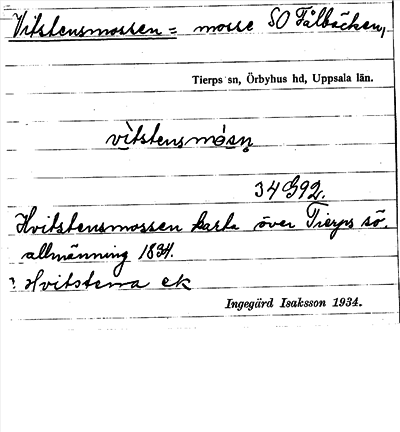 Vitstensmossen = mosse SO Fålbäcken,
Tierps sn, Örbyhus hd, Uppsala län.
vìtstensmósn̥
34 G92.
Hvitstensmossen karta över Tierps sö.
allmänning 1834.
? Hvitstena ek
Ingegärd Isaksson 1934.